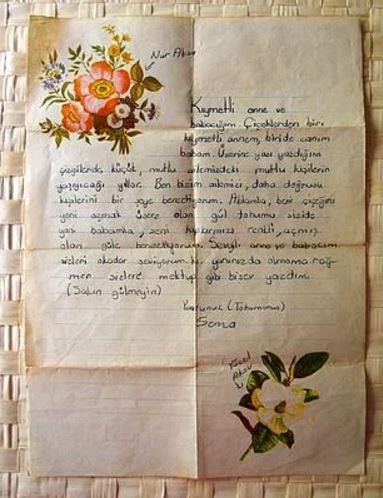 Nur Akav
Kıymetli anne ve
babacığım. Çiçeklerden biri
kıymetli annem, biride canım
babam. Üzerine yazı yazdığım
çizgilerde, küçük, mutlu ailemizdeki mutlu kişilerin
yaşıyacağı yıllar. Ben bizim ailemizi, daha doğrusu
kişilerini bir şeye benzetiyorum. Ablamla, beni çiçeğini
yeni açmak üzere olan gül tohumu sizide
yani babamla, seni kırmızı renkli, açmış
olan güle benzetiyorum. Sevgili anne ve babacım
sizleri okadar seviyorum ki yanınızda olmama rağ-
men sizlere mektup gibi birşey yazdım.
(Sakın gülmeyin)
Yavrunuz (Tohumunuz)
Sena
Akav